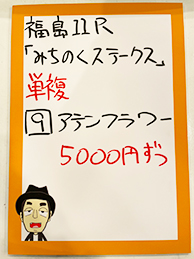 福島11R
「みちのくステークス」
単複
9 アテンフラワー
5000円ずつ